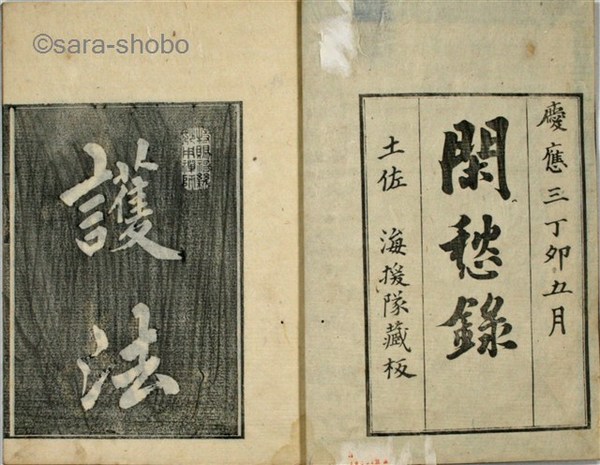 ©sara-shobo
慶應三丁卯五月
閑愁錄
土佐 海援隊藏板
護法